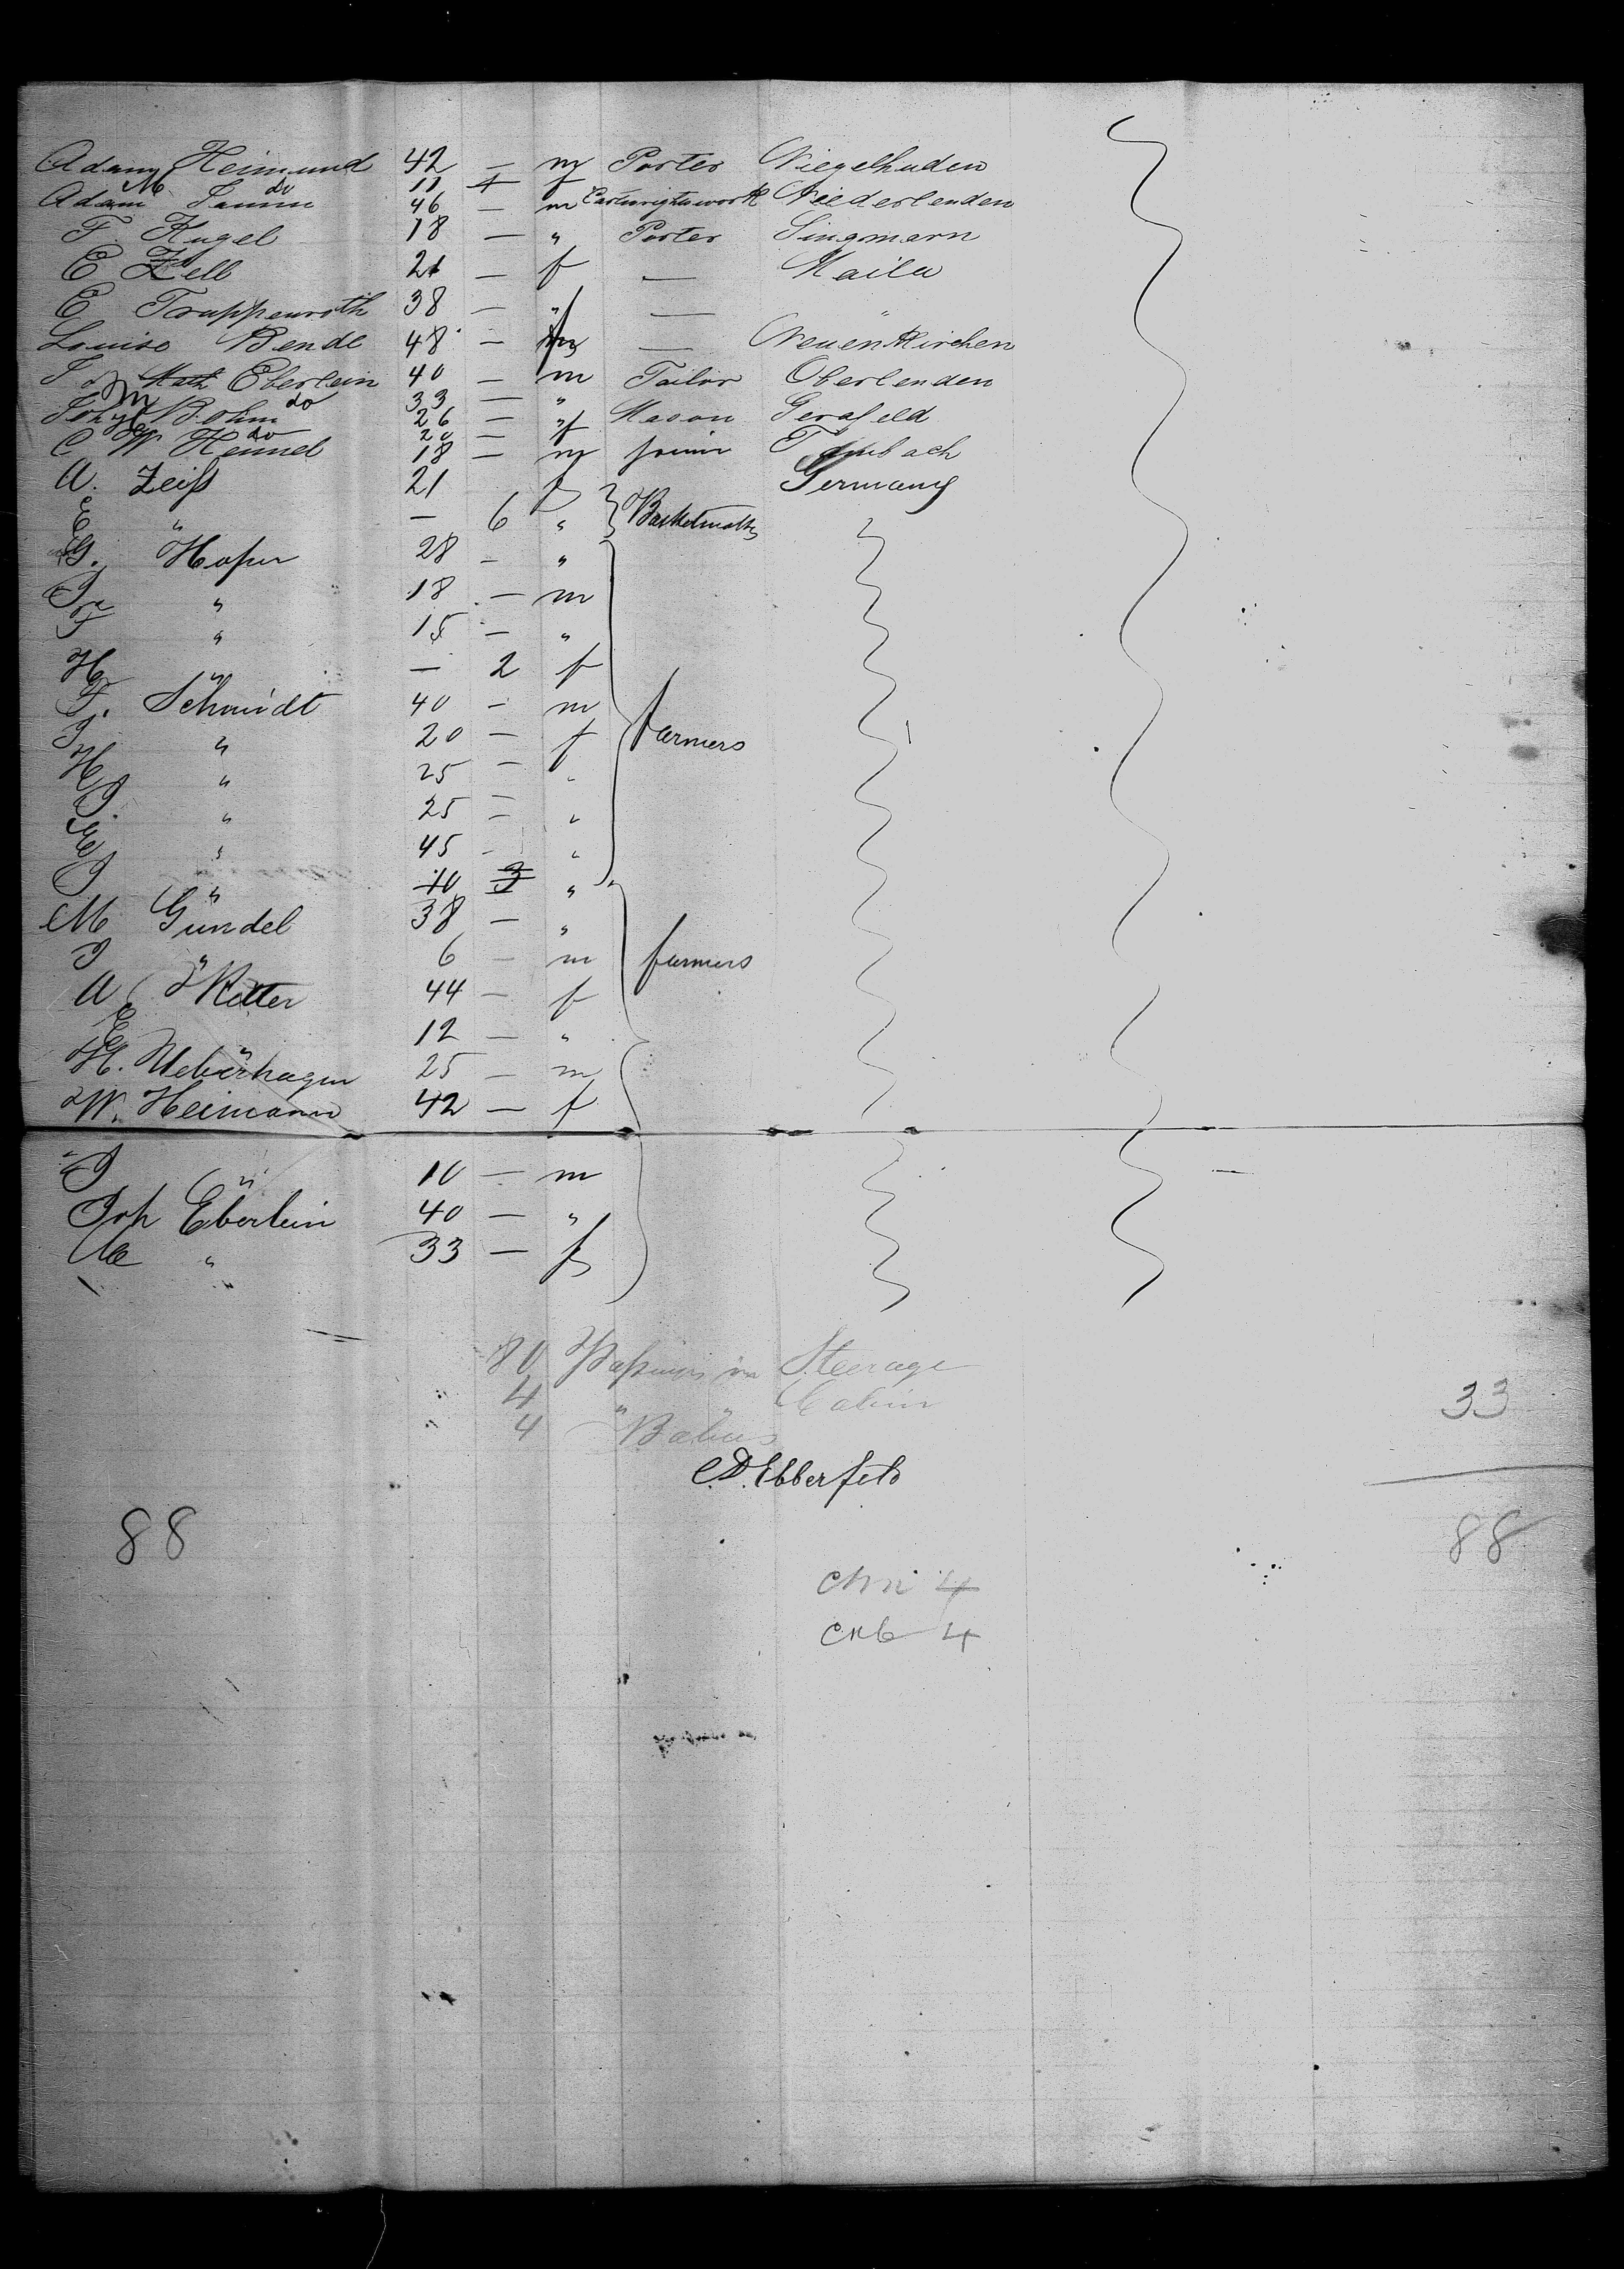 Adam Heimund 42 — m Porter Niegelhuden
M do 11 f
Adam Samm 46 — m Cartwrightswork Niederlenden
F. Kugel 18 — " Porter Singmarn
E Zell 21 — f — Maila
E Trappenroth 38 — " — "
Louise Bende 48 — f — Neuenkirchen
J Math Eberlein 40 — m Tailor Oberlenden
M do 33 — "
Böhm 26 — " Mason Gerafeld
do 20 — f
C W Hennel 18 — m
A. Zeiß 21 f Germany
E " — 6 "
G. Hofer 28 — "
" 18 — m
" 15 — "
H " — 2 f
F. Schmidt 40 — m
J " 20 — f farmers
H " 25 — "
J. " 25 — "
E " 45 — "
J " 10 3 "
M Gündel 38 — "
J " 6 — m farmers
A Ritter 44 — f
E " 12 — "
H. Ueberhagen 25 — m
W. Heimann 42 — f
J " 10 — m
Joh Eberlein 40 — "
" 33 — f
80 in Steerage
4 " " Cabin
4 Babies
33
C.D. Ebberfeld
88
88
4
4